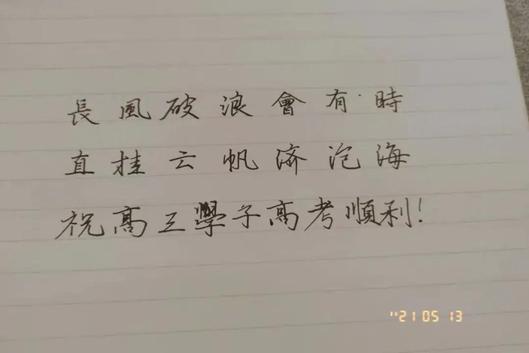 長風破浪會有時
直挂云帆济沧海
祝高三學子高考順利!
'21 05 13